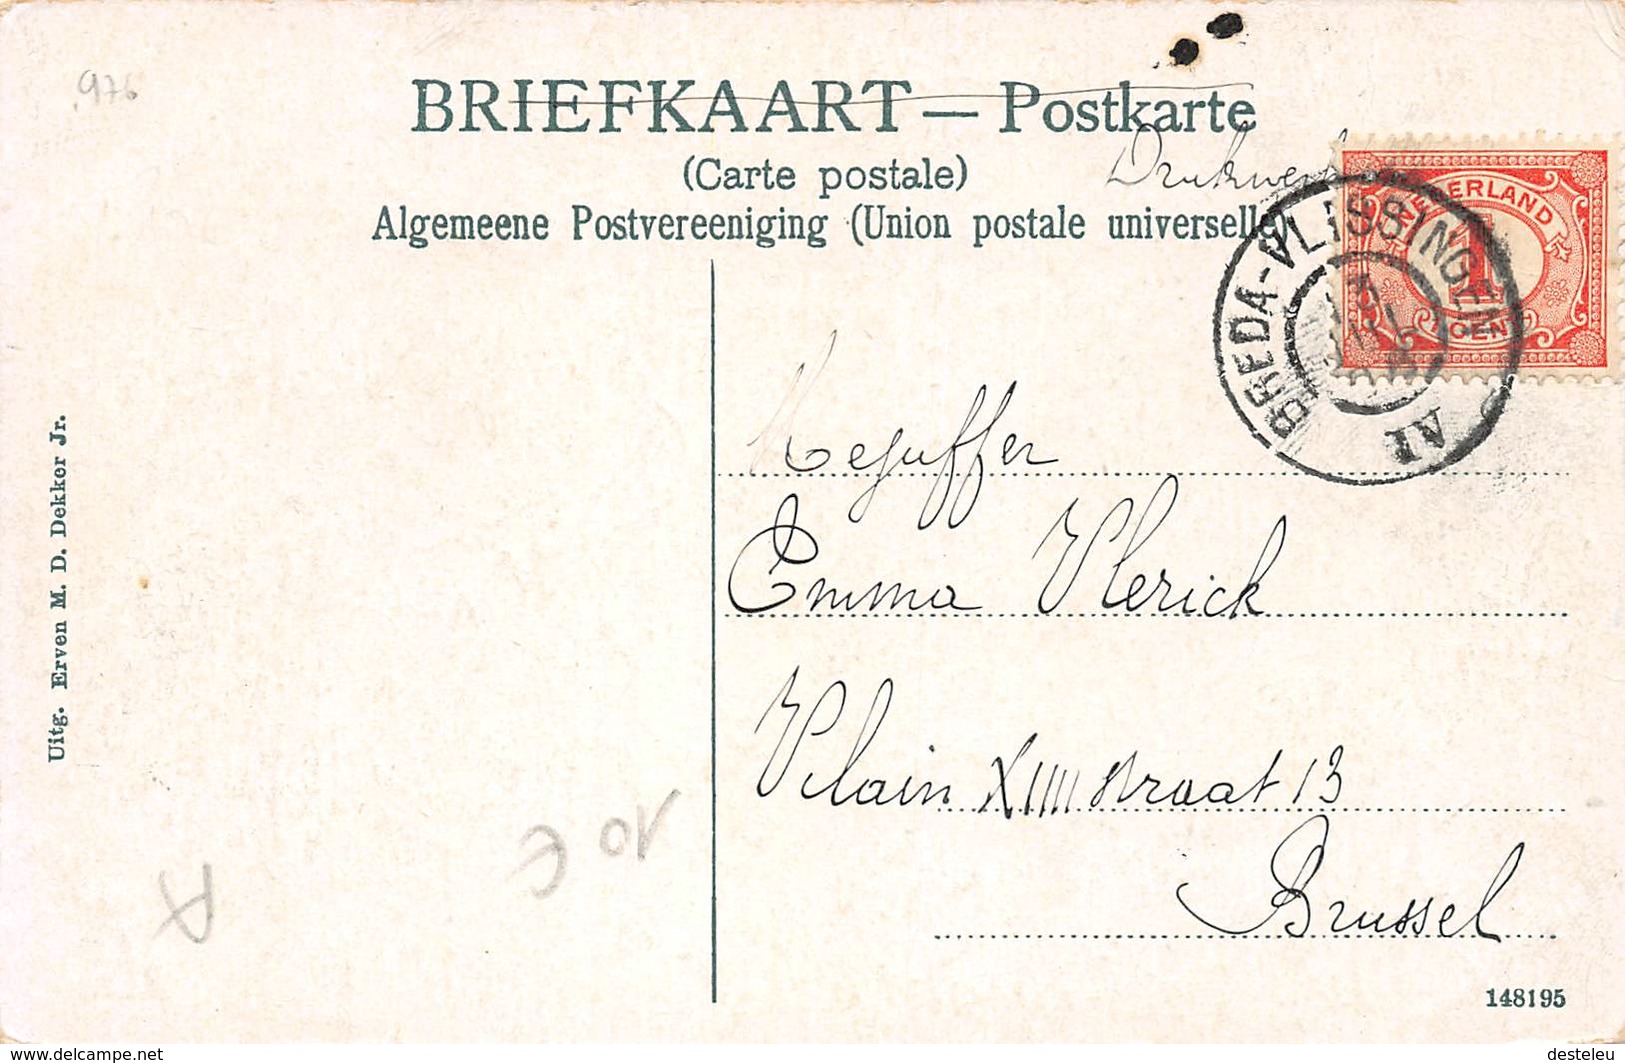 976
BRIEFKAART — Postkarte
Drukwerk
(Carte postale)
Algemeene Postvereeniging (Union postale universelle)
NEDERLAND
1
1 CENT
BREDA-VLISSINGEN
Uitg. Erven M. D. Dekker Jr.
Mejuffer
Emma Vlerick
Vilain XIIII straat 13
Brussel
10 €
A
148195
www.delcampe.net
desteleu